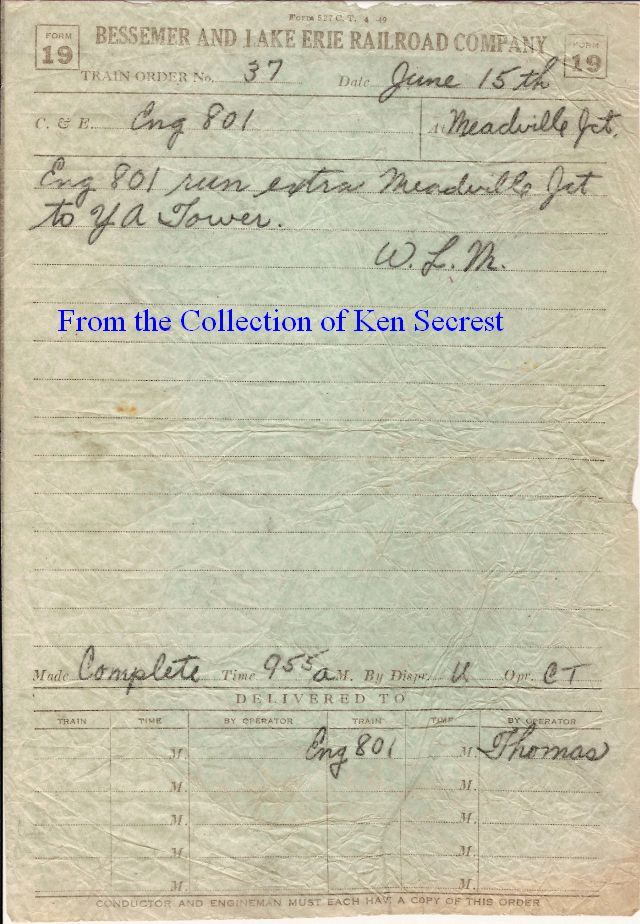 Form 527 C. T. 4 49
FORM 19 BESSEMER AND LAKE ERIE RAILROAD COMPANY FORM 19
TRAIN ORDER No. 37 Date June 15th
C. & E. Eng 801 At Meadville Jct.
Eng 801 run extra Meadville Jct
to YA Tower.
W. L. M.
From the Collection of Ken Secrest
Made Complete Time 955 a M. By Dispr. U Opr. CT
DELIVERED TO
TRAIN TIME BY OPERATOR TRAIN TIME BY OPERATOR
M. Eng 801 M. Thomas
M. M.
M. M.
M. M.
M. M.
CONDUCTOR AND ENGINEMAN MUST EACH HAVE A COPY OF THIS ORDER